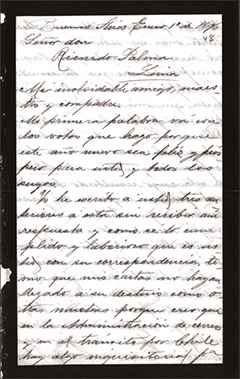 Buenos Aires Enero 1º de
48
Señor don
Ricardo Palma
Lima
Mi inolvidable amigo, maes-
tro y compadre.
Mi primera palabra va con
los votos que hago por que
este año nuevo sea feliz y pros
pero para usted y todos los
suyos.
Yo he escrito a usted tres an
teriores a esta sin recibir aun
respuesta y como se lo cum
plido y laborioso que es us
ted con su correspondencia, te
mo que mis cartas no hayan
llegado á su destino como o
tras muchas porque creo que
en la Administracion de correos
y en el transito por Chile
hay algo inquisitorial